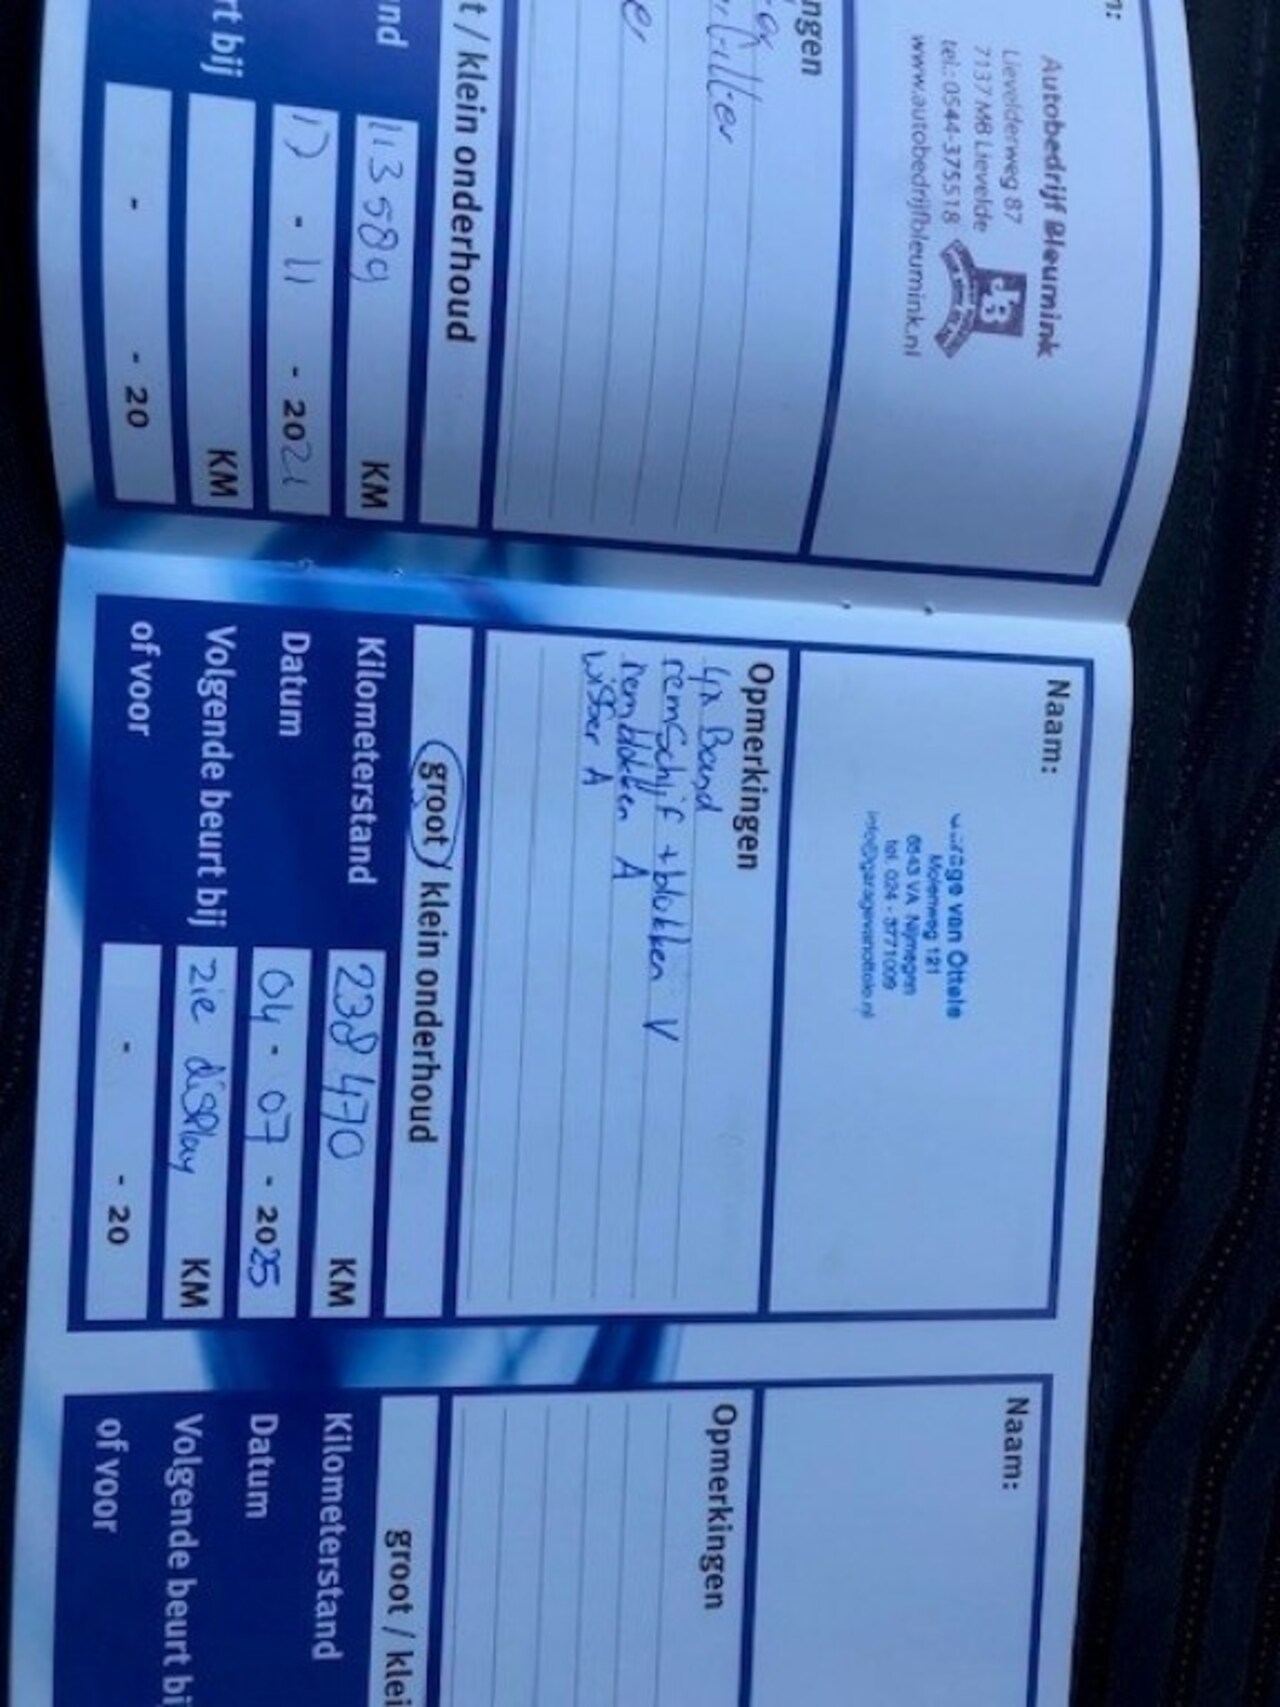 Autobedrijf Bleumink
Lievelderweg 87
7137 MB Lievelde
tel.: 0544-375518
www.autobedrijfbleumink.nl
JB
ngen
filter
er
t / klein onderhoud
nd 113589 KM
17 - 11 - 2021
rt bij KM
- - 20
Naam:
van Ottele
Molenweg 121
6543 VA Nijmegen
tel. 024 - 3771009
info@garagevanottele.nl
Opmerkingen
4x Band
remschijf + blokken V
remblokken A
wisser A
groot / klein onderhoud
Kilometerstand 238 470 KM
Datum 04 - 07 - 2025
Volgende beurt bij zie display KM
of voor - - 20
Naam:
Opmerkingen
groot / klei
Kilometerstand
Datum
Volgende beurt bi
of voor